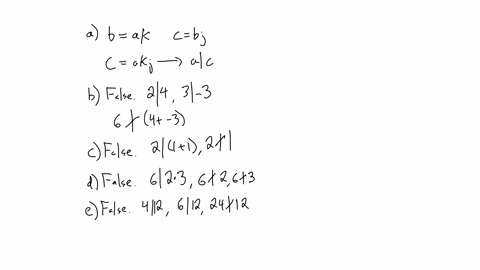 a) b = ak   c = bj
c = akj ⟶ a|c
b) False. 2|4, 3|-3
6∤(4+-3)
c) False. 2|(1+1), 2∤1
d) False. 6|2·3, 6∤2, 6∤3
e) False. 4|12, 6|12, 24∤12